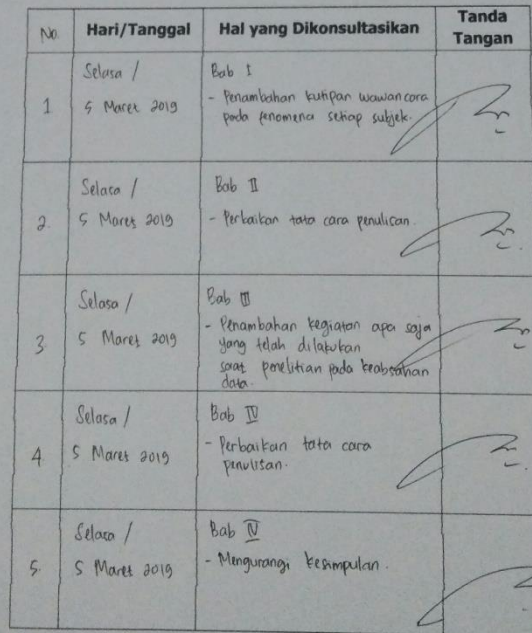 No. Hari/Tanggal Hal yang Dikonsultasikan Tanda Tangan
1 Selasa / 5 Maret 2019
Bab I
- Penambahan kutipan wawancara
pada fenomena setiap subjek.
2. Selasa / 5 Maret 2019
Bab II
- Perbaikan tata cara penulisan.
3 Selasa / 5 Maret 2019
Bab III
- Penambahan kegiatan apa saja
yang telah dilakukan
saat penelitian pada keabsahan
data.
4 Selasa / 5 Maret 2019
Bab IV
- Perbaikan tata cara
penulisan.
5. Selasa / 5 Maret 2019
Bab IV
- Mengurangi kesimpulan.